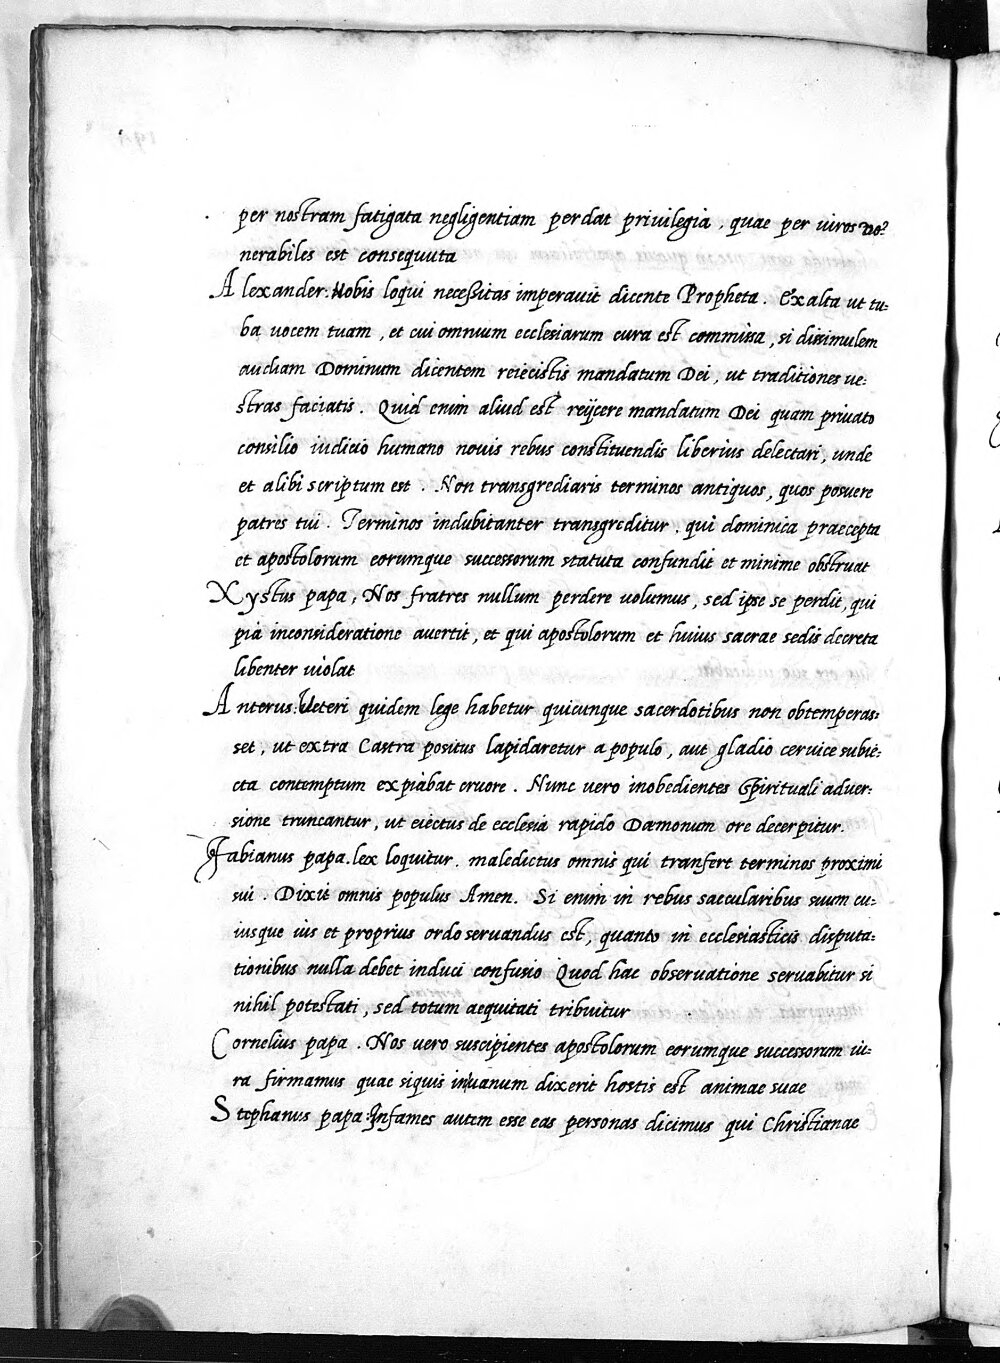 per nostram fatigata negligentiam perdat privilegia, quae per viros ve=
nerabiles est consequuta
Alexander: Nobis loqui necessitas imperavit dicente Propheta. Exalta ut tu=
ba uocem tuam, et cui omnium ecclesiarum cura est commissa, si dissimulem
audiam Dominum dicentem reiecistis mandatum Dei, ut traditiones ue=
stras faciatis. Quid enim aliud est reijcere mandatum Dei quam priuato
consilio iudicio humano nouis rebus constituendis liberius delectari, unde
et alibi scriptum est. Non transgrediaris terminos antiquos, quos posuere
patres tui. Terminos indubitanter transgreditur. qui dominica praecepta
et apostolorum eorumque successorum statuta confundit et minime obstruat
Xystus papa, Nos fratres nullum perdere uolumus, sed ipse se perdit, qui
pia inconsideratione auertit, et qui apostolorum et huius sacrae sedis decreta
libenter uiolat
Anterus: Ueteri quidem lege habetur quicunque sacerdotibus non obtemperas=
set, ut extra Castra positus lapidaretur a populo, aut gladio ceruice subie=
cta contemptum expiabat cruore. Nunc uero inobedientes spirituali aduer=
sione truncantur, ut eiectus de ecclesia rapido Dæmonum ore decerpitur.
Fabianus papa. lex loquitur. maledictus omnis qui tranfert terminos proximi
sui. Dixit omnis populus Amen. Si enim in rebus saecularibus suum cu=
iusque ius et proprius ordo seruandus est, quanto in ecclesiasticis disputa=
tionibus nulla debet induci confusio Quod hac obseruatione seruabitur si
nihil potestati, sed totum aequitati tribuitur
Cornelius papa. Nos uero suscipientes apostolorum eorumque successorum iu=
ra firmamus quae siquis inuanum dixerit hostis est animae suae
Stephanus papa: Infames autem esse eas personas dicimus qui Christianae